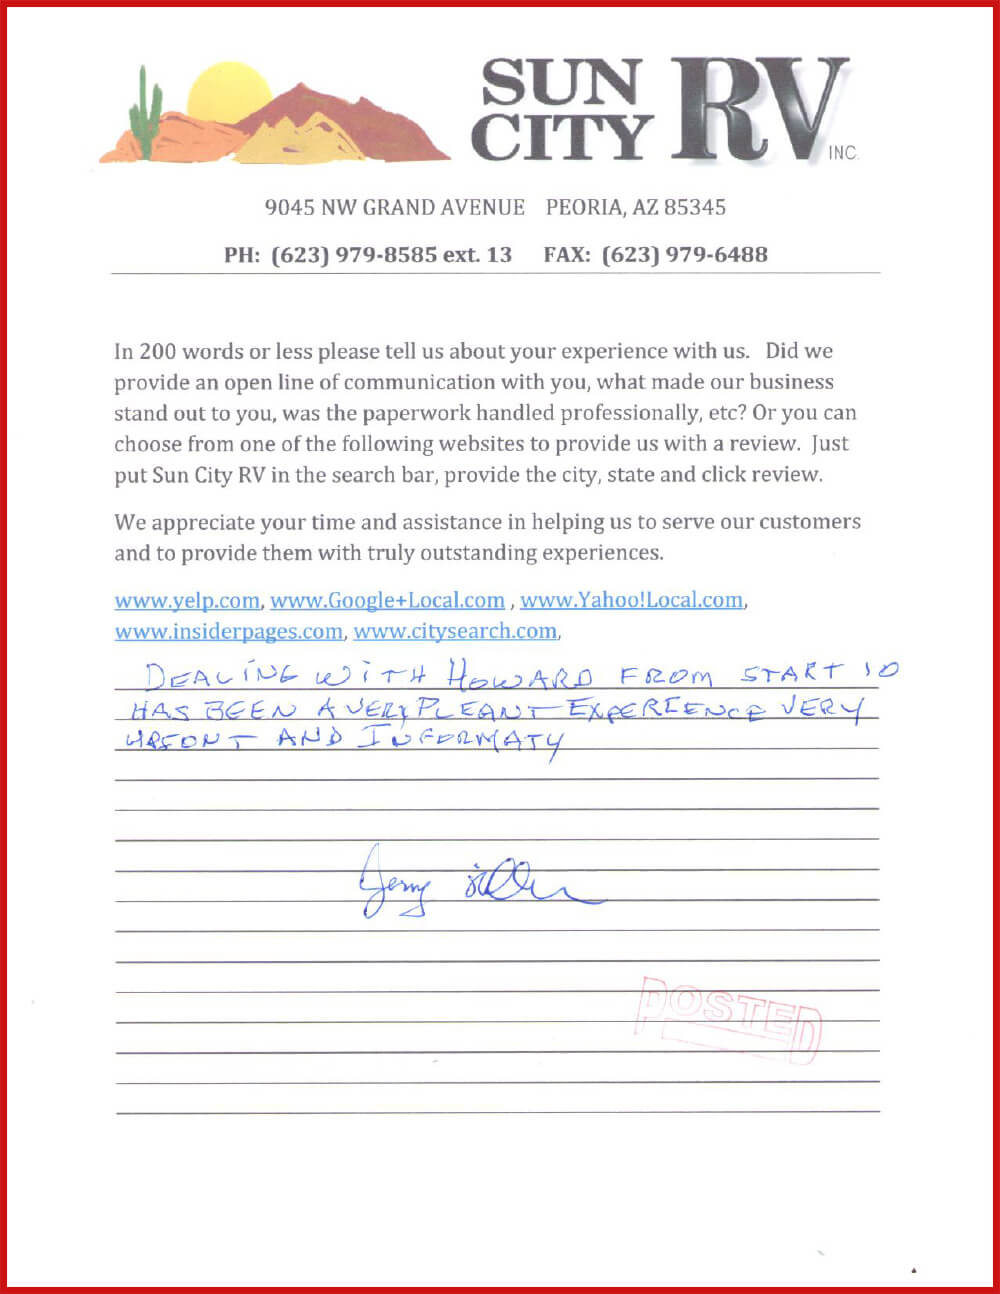 SUN
CITY RV INC.
9045 NW GRAND AVENUE PEORIA, AZ 85345
PH: (623) 979-8585 ext. 13 FAX: (623) 979-6488
In 200 words or less please tell us about your experience with us. Did we
provide an open line of communication with you, what made our business
stand out to you, was the paperwork handled professionally, etc? Or you can
choose from one of the following websites to provide us with a review. Just
put Sun City RV in the search bar, provide the city, state and click review.
We appreciate your time and assistance in helping us to serve our customers
and to provide them with truly outstanding experiences.
www.yelp.com, www.Google+Local.com , www.Yahoo!Local.com,
www.insiderpages.com, www.citysearch.com,
DEALING WITH HOWARD FROM START
HAS BEEN A VERY PLEANT EXPERIENCE VERY
UPFONT AND INFORMATY
Jerry
POSTED